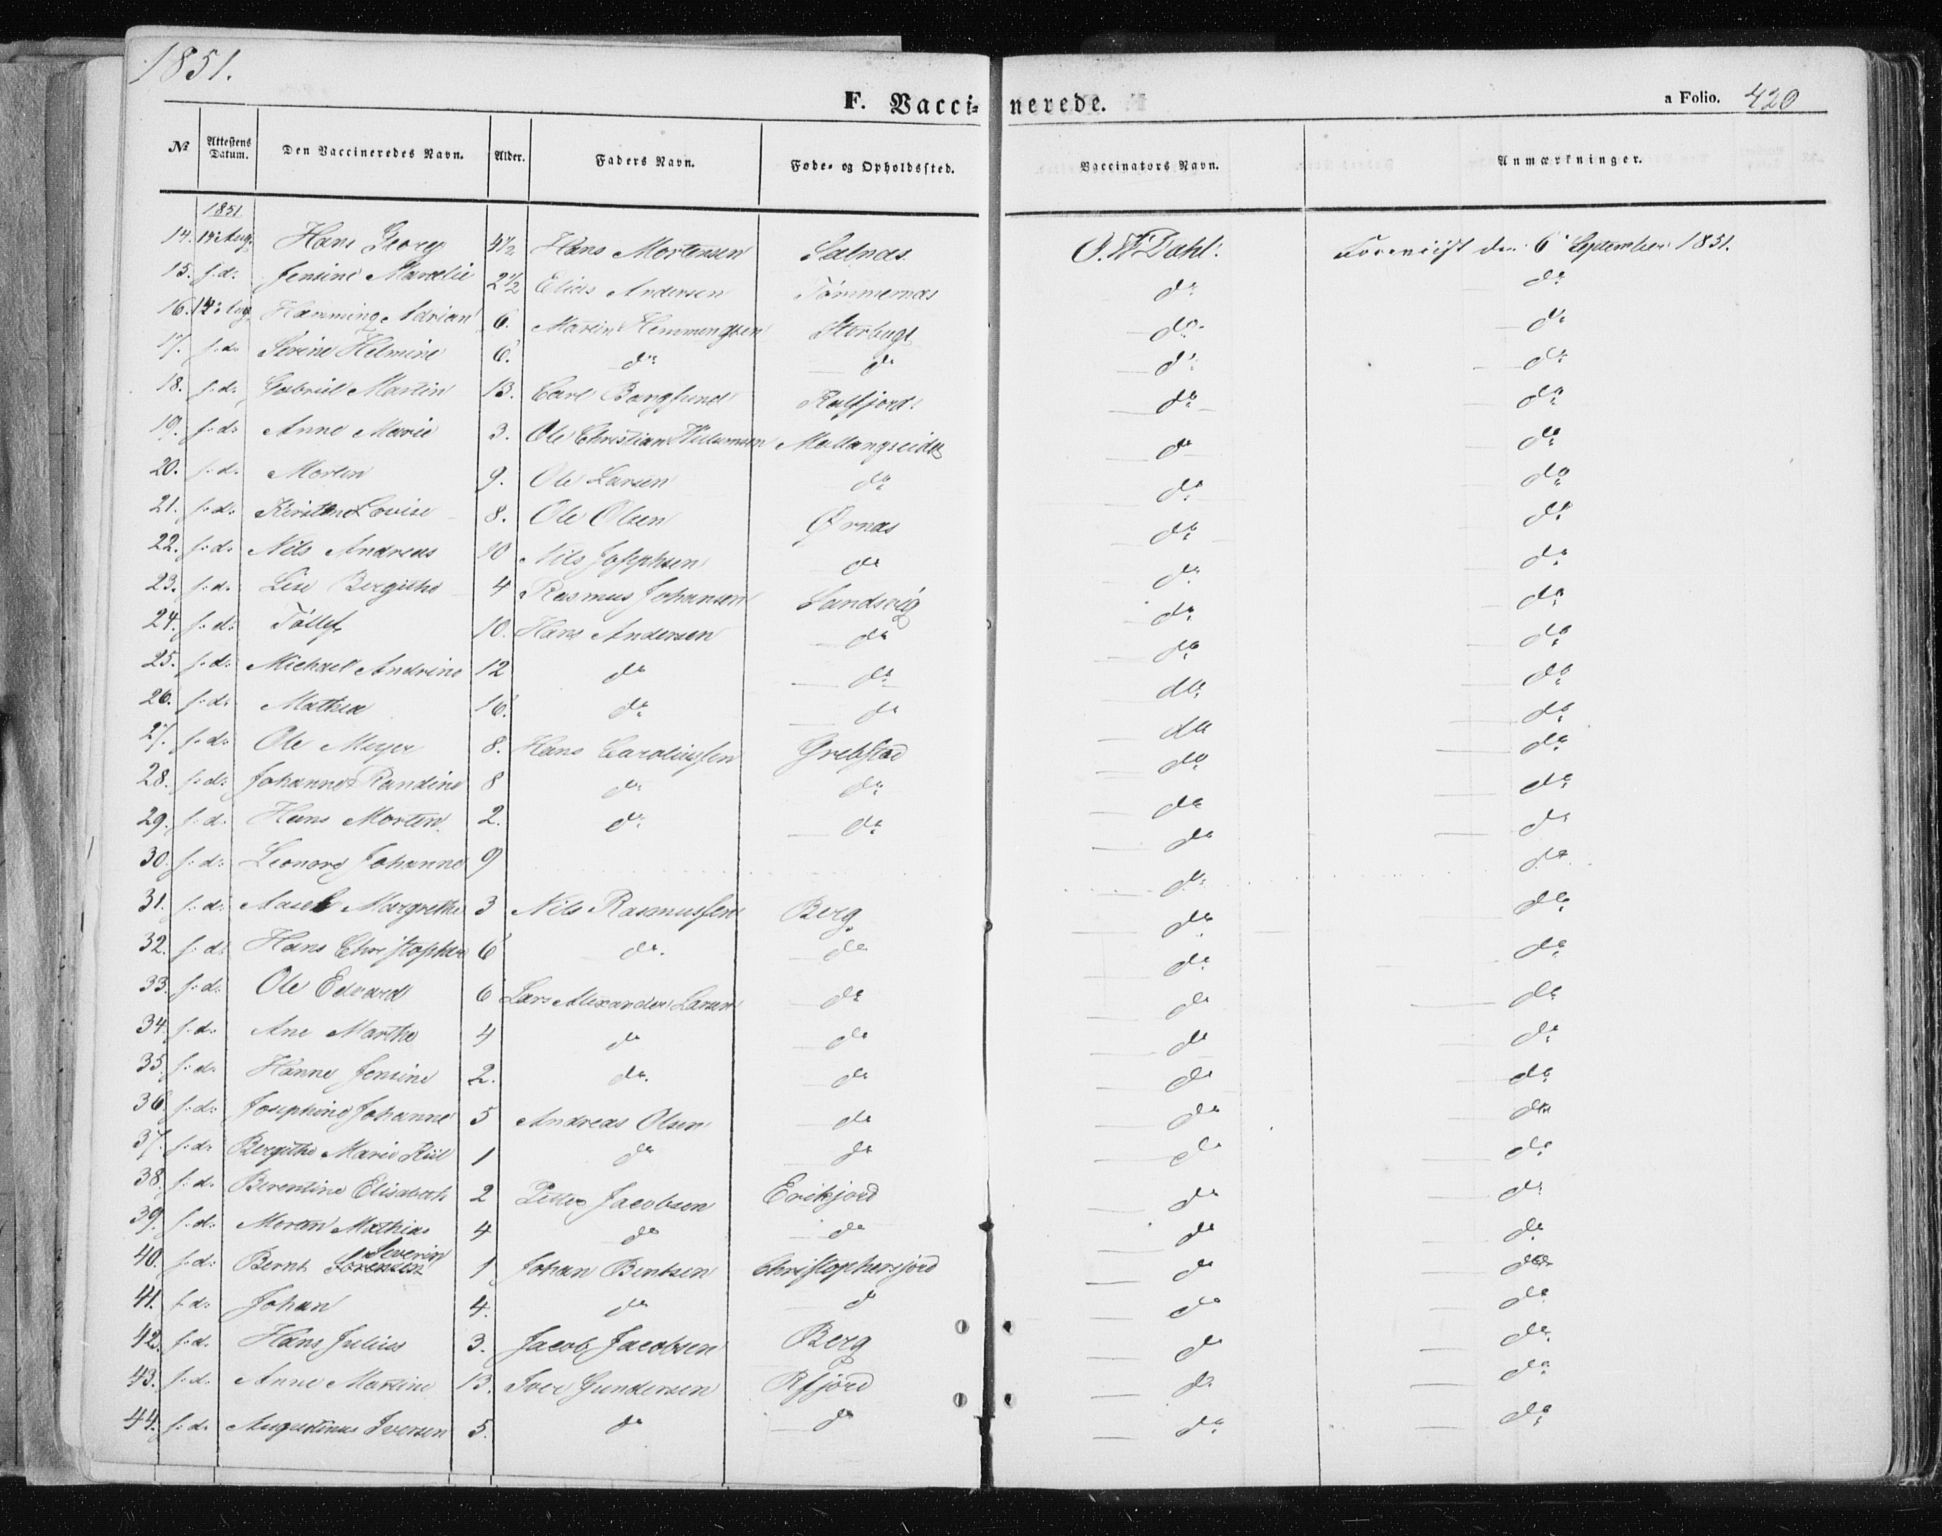 1851.
F. Vaccinerede.
a Folio. 420
№ Attestens Datum. Den Vaccineredes Navn. Alder. Faders Navn. Føde- og Opholdssted. Vaccinators Navn. Anmærkninger.
1851
14. 14 Aug. Hans Georg 4 1/2 Hans Mortensen Salnæs O. W Dahl. Foreviist den 6 September 1851.
15. s. d. Jensine Marelie 2 1/2 Elias Andersen Tömmernæs do do
16. 14 Aug. Hemming Adrian 6. Martin Hemmingsen Storbugt do do
17. s. d. Serine Helmine 6. do do do do
18. s. d. Gabriel Martin 13. Carl Berglund Kalfjord. do do
19. s. d. Anne Marie 3. Ole Christian Willumsen Mallangseidet do do
20. s. d. Morten 9. Ole Larsen do do do
21. s. d. Kirstine Lovise 8. Ole Olsen Ørnæs do do
22. s. d. Nils Andreas 10 Nils Josephsen do do do
23. s. d. Lise Bergithe 4 Rasmus Johansen Sandsvåg do do
24. s. d. Tøllef 10. Hans Andersen do do do
25. s. d. Michael Andrine 12 do do do do
26. s. d. Mathea 16. do do do do
27. s. d. Ole Meyer 8. Hans Caroliussen Grebstad do do
28. s. d. Johanne Randine 8 do do do do
29. s. d. Hans Morten 2. do do do do
30. s. d. Leonore Johanne 9 do do
31. s. d. Aasel Margrethe 3 Nils Rasmussen Berg do do
32. s. d. Hans Christopher 6 do. do do do
33. s. d. Ole Edvard 6 Lars Alexander Larsen do do do
34. s. d. Ane Marthe 4 do do do do
35. s. d. Hanne Jensine 2. do. do do do
36. s. d. Josephine Johanne 5 Andreas Olsen do do do
37. s. d. Bergithe Marie Kiil 1 do do do do
38. s. d. Berentine Elisabeth 2 Petter Jacobsen Erikjord do do
39. s. d. Morten Mathias 4 do do do do
40. s. d. Bernt Severin 1 Johan Bentsen Christophersjord do do
41. s. d. Johan 4. do do do do
42. s. d. Hans Julius 3. Jacob Jacobsen Berg do do
43. s. d. Anne Martine 13. Iver Gundersen Rfjord do do
44. s. d. Augustinus Iversen 5. do do do do